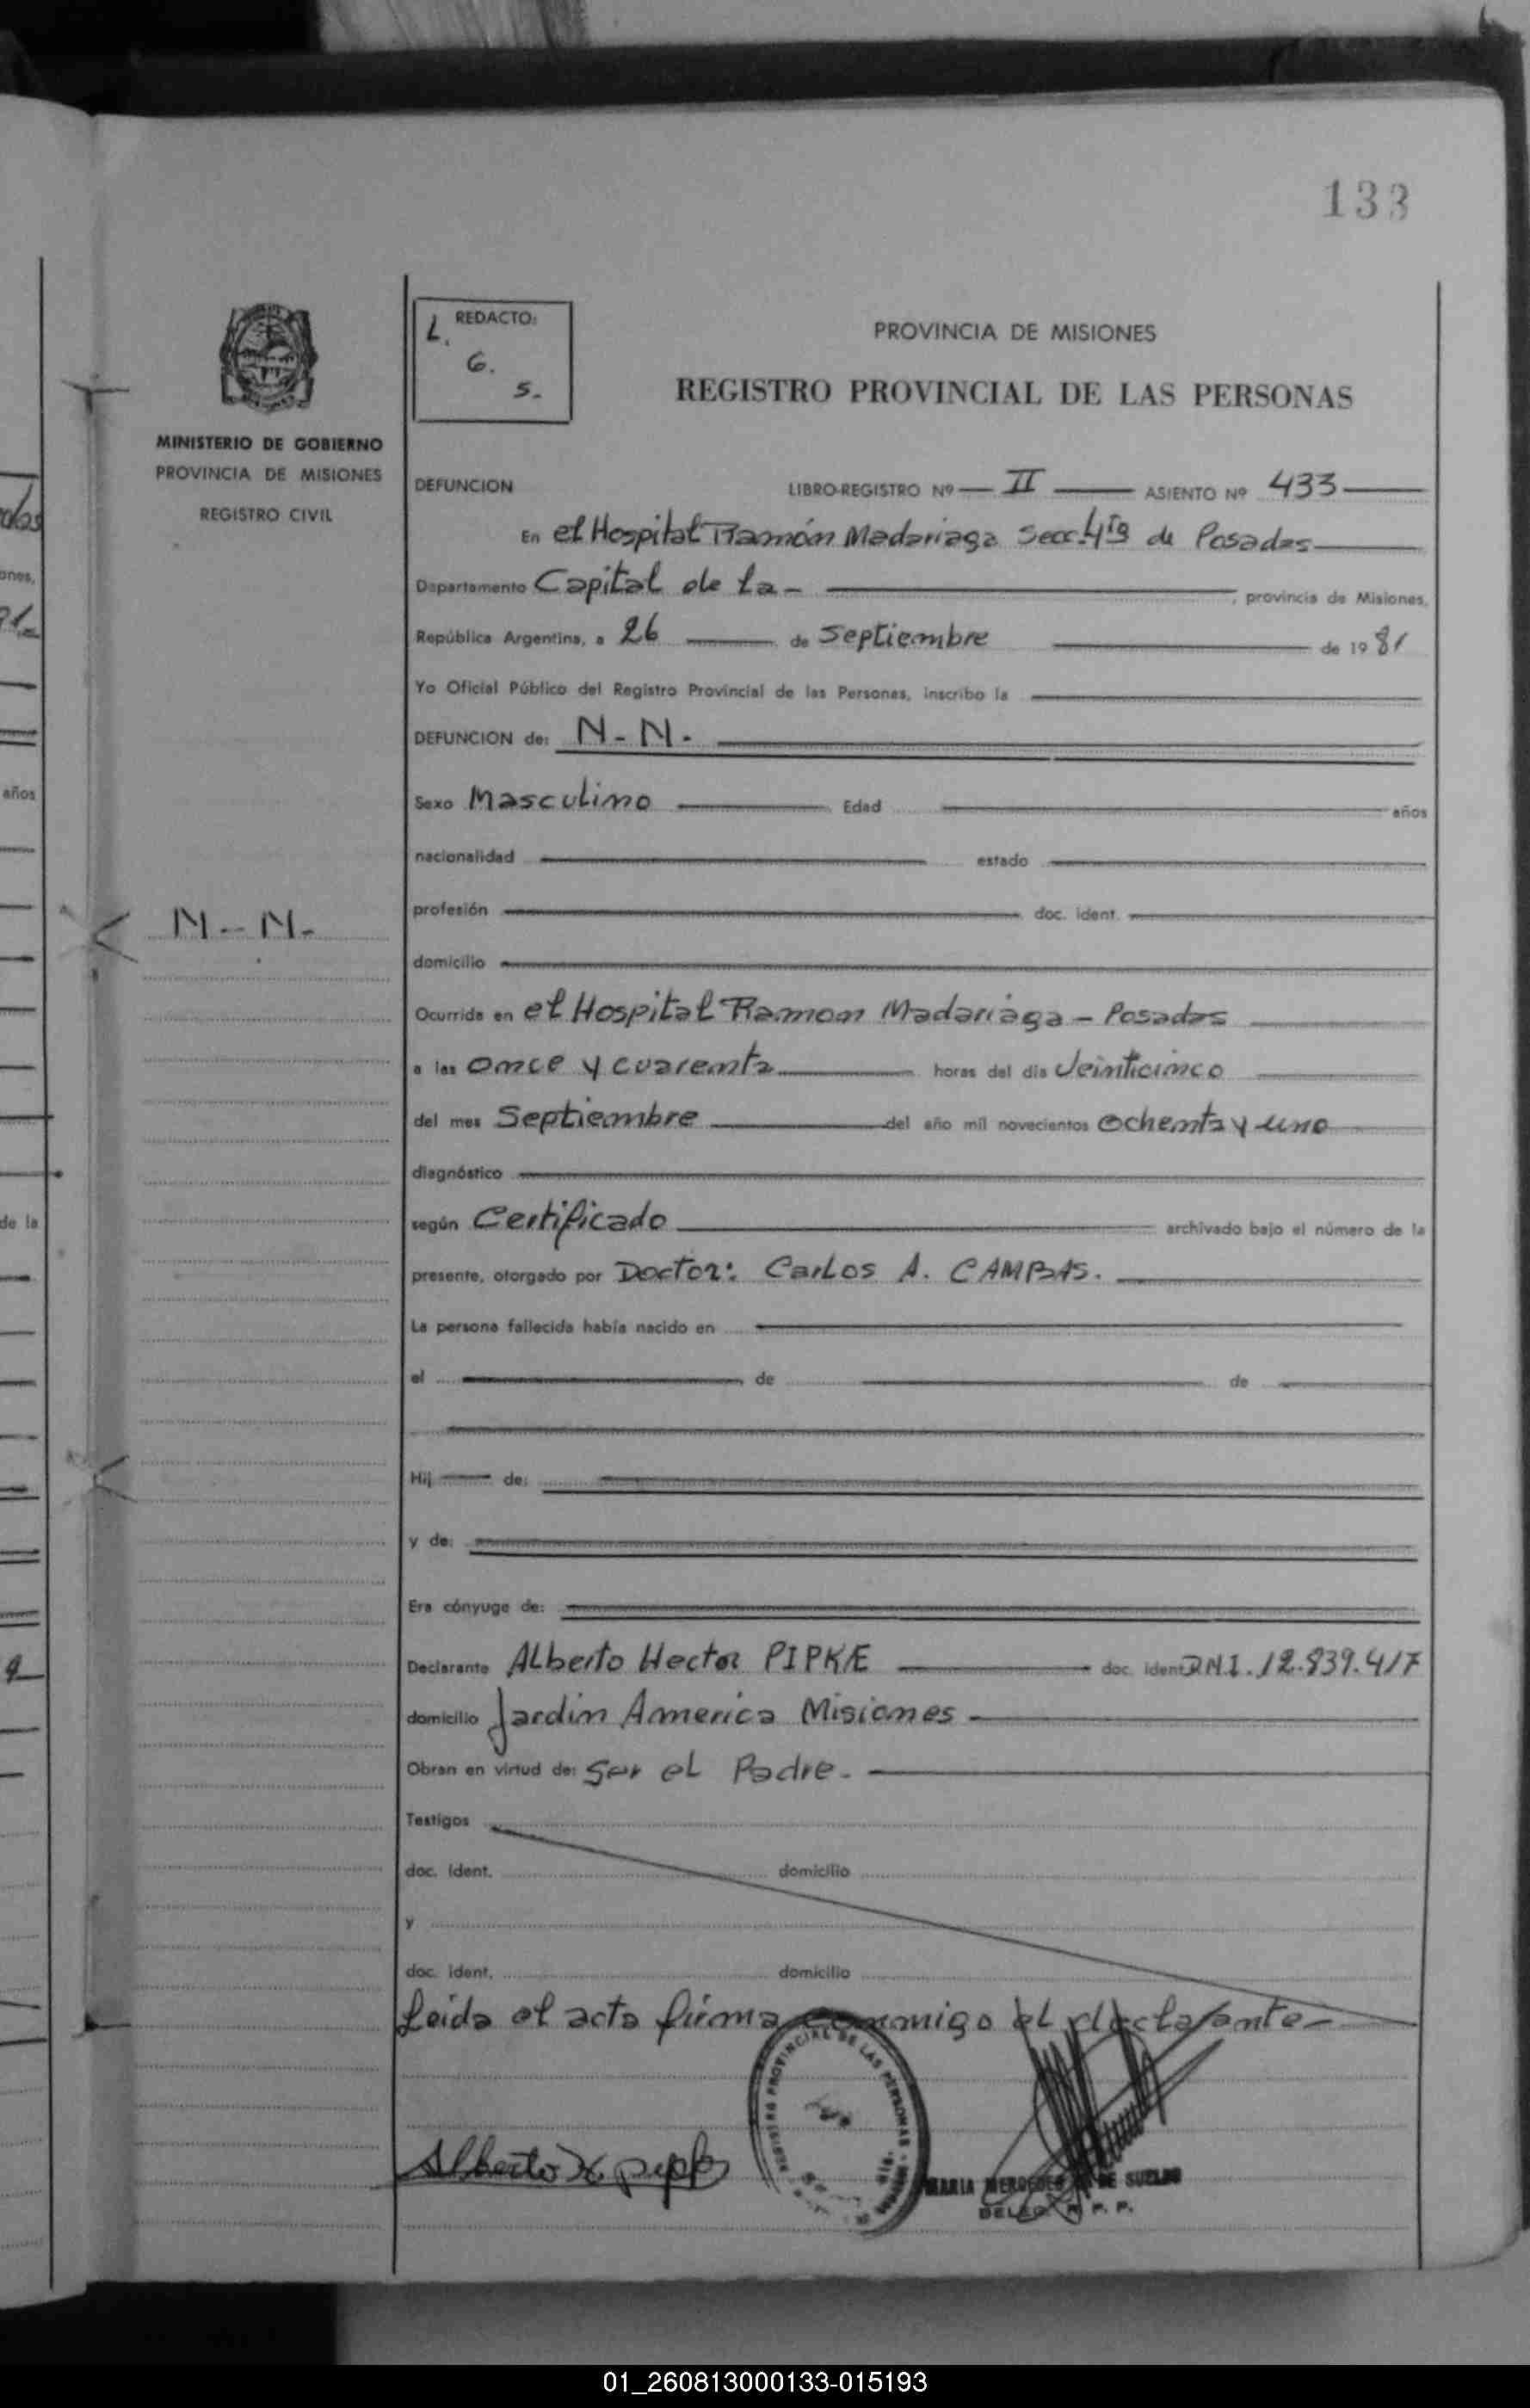 133
MINISTERIO DE GOBIERNO
PROVINCIA DE MISIONES
REGISTRO CIVIL
N-N-
REDACTO:
L.
G.
S.
PROVINCIA DE MISIONES
REGISTRO PROVINCIAL DE LAS PERSONAS
DEFUNCION LIBRO-REGISTRO Nº II ASIENTO Nº 433
En el Hospital Ramón Madariaga Secc. 4ta de Posadas
Departamento Capital de la - , provincia de Misiones,
República Argentina, a 26 de Septiembre de 1981
Yo Oficial Público del Registro Provincial de las Personas, inscribo la
DEFUNCION de: N-N-
Sexo Masculino Edad años
nacionalidad estado
profesión doc. ident.
domicilio
Ocurrida en el Hospital Ramon Madariaga - Posadas
a las once y cuarenta horas del día Veinticinco
del mes Septiembre del año mil novecientos ochenta y uno
diagnóstico
según Certificado archivado bajo el número de la
presente, otorgado por Doctor: Carlos A. CAMBAS.
La persona fallecida había nacido en
el de de
Hij de:
y de:
Era cónyuge de:
Declarante Alberto Hector PIPKE doc. ident D.N.I. 12.839.417
domicilio Jardin America Misiones -
Obran en virtud de: Ser el Padre.
Testigos
doc. ident. domicilio
y
doc. ident. domicilio
Leida el acta firma conmigo el declarante-
REGISTRO PROVINCIAL DE LAS PERSONAS
Alberto H. Pipke
MARIA MERCEDES DE SUELDO
DELEG. R. P. P.
años
de la
01_260813000133-015193